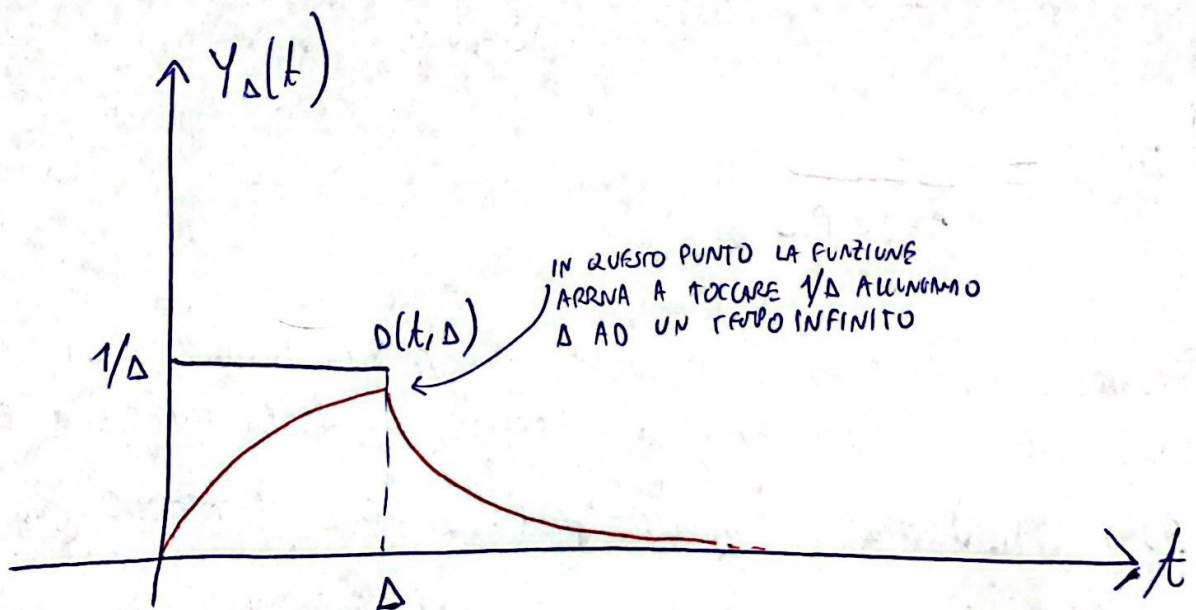 Y_Δ(t)
IN QUESTO PUNTO LA FUNZIONE
ARRIVA A TOCCARE 1/Δ ALLUNGANDO
Δ AD UN TEMPO INFINITO
D(t,Δ)
1/Δ
Δ
t